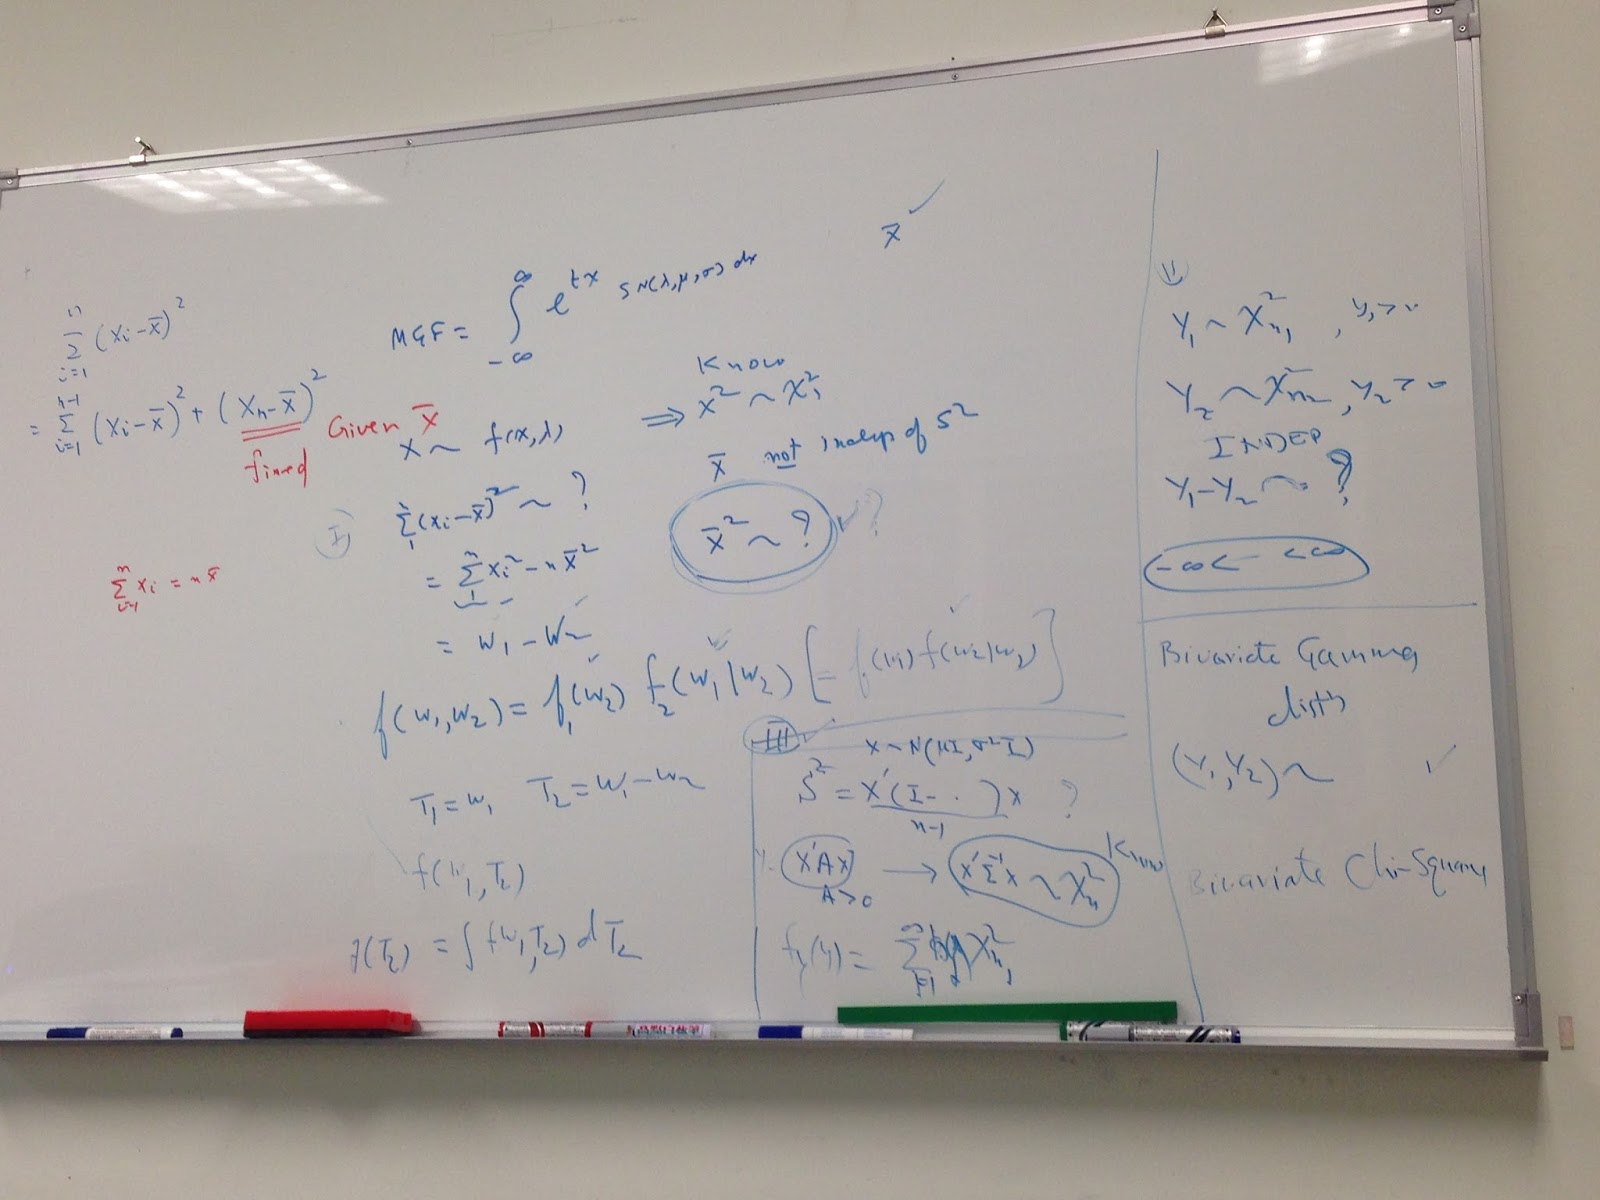 n
Σ (xᵢ-x̄)²
i=1
n-1
= Σ (xᵢ-x̄)² + (xₙ-x̄)²
i=1
fixed
Given x̄
n
Σ xᵢ = n x̄
i=1
MGF = ∫ e^{tx} SN(λ,μ,σ) dx
∞
-∞
x̄ ✓
X ~ f(x,λ)
Know
⟹ x² ~ χ²₁
x̄ not indep of S²
I
Σ(xᵢ-x̄)² ~ ?
1
n
= Σxᵢ² - n x̄²
1
= W₁ - W₂
x̄² ~ ? ✓ ?
f(w₁,w₂) = f₁(w₂) f₂(w₁|w₂) [= f(w₁) f(w₂|w₂)]
T₁=w₁ T₂=w₁-w₂
f(w₁,T₂)
f(T₂) = ∫ f(w₁,T₂) dT₂
III ✓
X ~ N(μI,σ²I)
S² = X'(I- . )X ?
n-1
X'AX → X'Σ⁻¹X ~ χ²ₙ Know
A>0
II
Y₁ ~ χ²ₙ₁ , Y₁>0
Y₂ ~ χ²ₙ₂ , Y₂>0
INDEP
Y₁-Y₂ ~ ?
-∞< <∞
Bivariate Gamma
distⁿ
(Y₁,Y₂) ~ ✓
Bivariate Chi-Square